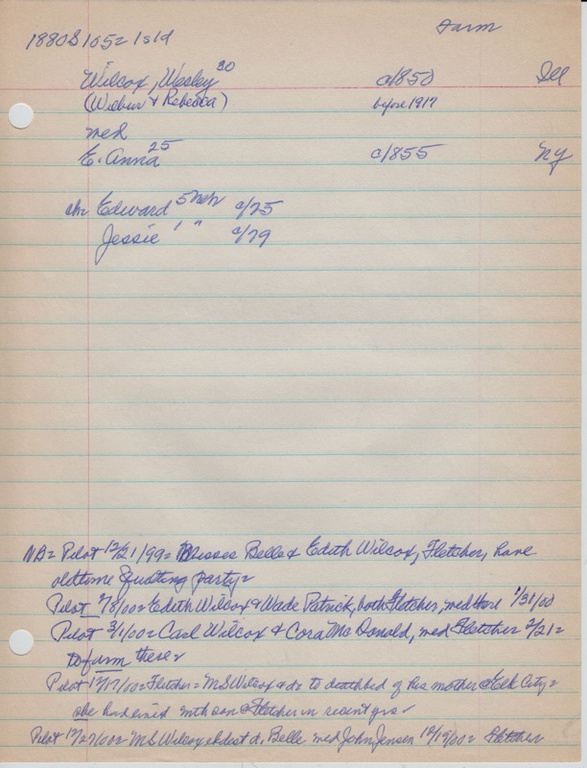 1880 S105= Isld
Farm
Wilcox, Wesley 30 c/1850 Ill
(Wilbur & Rebecca) before 1917
med
E. Anna 25 c/1855 NY
ch= Edward 5 Neb c/75
Jessie 1 " c/79
NB= Pilot 12/21/99= Misses Belle & Edith Wilcox, Fletcher, have
oldtime quilting party=
Pilot 2/8/00= Edith Wilcox & Wade Patrick, both Fletcher, med 1/31/00
Pilot 3/1/00= Carl Wilcox & Cora McDonald, med Fletcher 2/21=
to farm there=
Pilot 12/17/00= Fletcher= M S Wilcox & ds to deathbed of his mother @ Elk City=
she had lived with son @ Fletcher in recent yrs=
Pilot 12/27/00= M S Wilcox eldest d, Belle med John Jensen 12/19/00= Fletcher